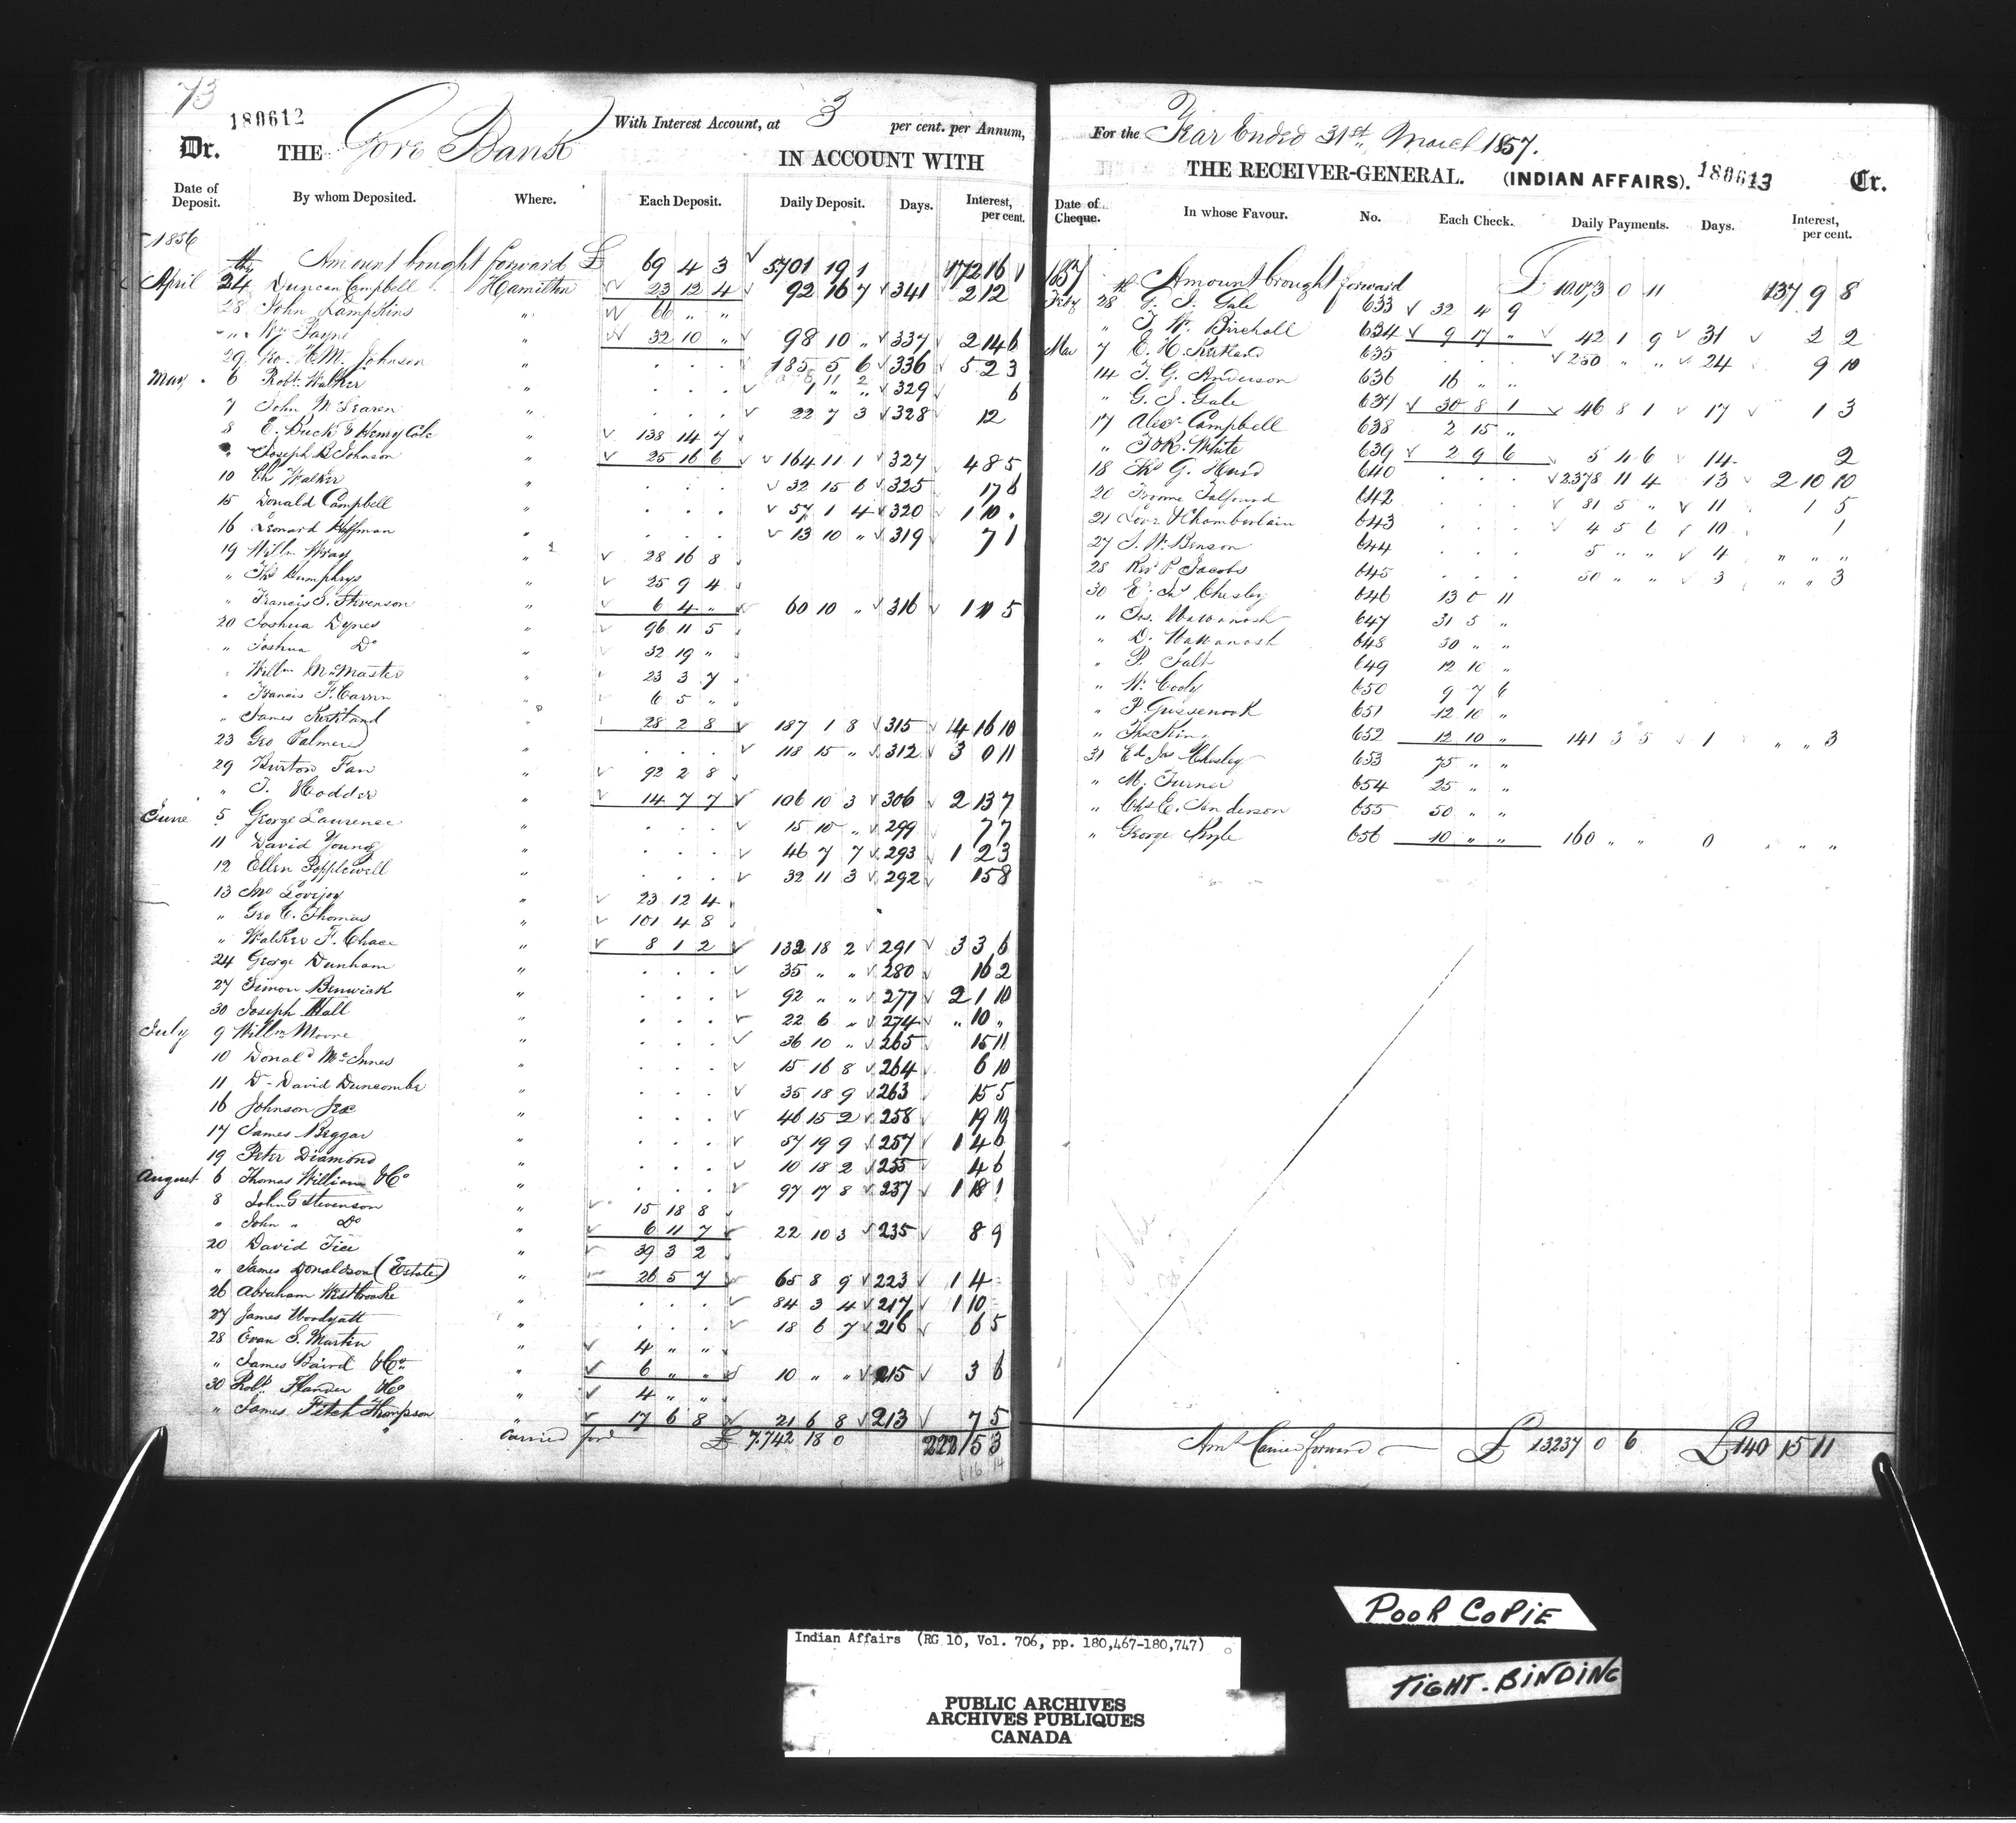 73
180612
Dr. THE Gore Bank With Interest Account, at 3 per cent. per Annum,
IN ACCOUNT WITH
Date of Deposit. By whom Deposited. Where. Each Deposit. Daily Deposit. Days. Interest, per cent.
1856
Amount bought forward £ 69 4 3 5701 19 1 172 16 1
April 24 Duncan Campbell Hamilton 23 12 4 92 16 7 341 2 12
28 John Lampkins " 66 " "
" " Wm Payne " 32 10 " 98 10 " 337 2 14 6
29 Geo. H.M. Johnson " 185 5 6 336 5 2 3
May 6 Robt Walker " 1 " " 329 6
7 John McLaren " 22 7 3 328 12
8 E. Buck & Henry Cole " 138 14 7
" Joseph B Johnson " 25 16 6 164 11 1 327 4 8 5
10 Ch Walker " 32 15 6 325 17 6
15 Donald Campbell " 57 1 4 320 1 10 "
16 Leonard Huffman " 13 10 " 319 7 1
19 Willm Wray " 28 16 8
" Thos Humphrys " 25 9 4
" Francis S. Stevenson " 6 4 " 60 10 " 316 1 11 5
20 Joshua Dynes " 96 11 5
" Joshua Do " 32 19 "
" Willm McMaster " 23 3 7
" Francis F. Carson " 6 5 "
" James Kirkland " 28 2 8 187 1 8 315 4 16 10
23 Geo Palmer " 118 15 " 312 3 0 11
29 Burton Fan " 92 2 8
" T. Hodder " 14 7 7 106 10 3 306 2 13 7
June 5 George Laurence " 15 10 " 299 7 7
11 David Young " 46 7 7 293 1 2 3
12 Ellen Popplewell " 32 11 3 292 15 8
13 Jno Lovejoy " 23 12 4
" Geo C. Thomas " 101 4 8
" Walker F. Chace " 8 1 2 132 18 2 291 3 3 6
24 George Dunham " 35 " " 280 16 2
27 Simon Benwick " 92 " " 277 2 1 10
30 Joseph Hall " 22 6 " 274 " 10 "
July 9 Willm Moore " 36 10 " 265 15 11
10 Donald McInnes " 15 16 8 264 6 10
11 Dr David Duncombe " 35 18 9 263 15 5
16 Johnson " 46 15 2 258 19 10
17 James Beggar " 57 19 9 257 1 4 6
19 Peter Diamond " 10 18 2 255 4 6
August 6 Thomas William & Co " 97 17 8 237 1 18 1
8 John G Stevenson " 15 18 8
" John " Do " 6 11 7 22 10 3 235 8 9
20 David Tice " 39 3 2
" James Donaldson (Estate) " 26 5 7 65 8 9 223 1 4
26 Abraham Westbrooke " 84 3 4 217 1 10
27 James Woodyatt " 18 6 7 216 6 5
28 Evan S. Martin " 4 " "
" James Baird & Co " 6 " " 10 " " 215 3 6
30 Robt Flander & Co " 4 " "
" James Fitch Thompson " 17 6 8 21 6 8 213 7 5
Carried ford £ 7.742 18 0 222 15 3
For the Year Ended 31st March 1857.
THE RECEIVER-GENERAL. (INDIAN AFFAIRS). 180613 Cr.
Date of Cheque. In whose Favour. No. Each Check. Daily Payments. Days. Interest, per cent.
1857 Amount brought forward £ 10.073 0 11 137 9 8
Feby 28 G. I. Gale 633 32 4 9
" T. W. Birchall 634 9 17 " 42 1 9 31 2 2
Mar 7 E. H. Kirtland 635 250 " " 24 9 10
14 T. G. Anderson 636 16 " "
" G. I. Gale 637 30 8 1 46 8 1 17 1 3
17 Alexr Campbell 638 2 15 "
" J & R. White 639 2 9 6 5 4 6 14 2
18 Thos G. Hurd 640 2378 11 4 13 2 10 10
20 Froome Talfourd 642 81 5 " 11 1 5
21 Chamberlain 643 4 5 6 10 1
27 J. W. Benson 644 5 " " 4 " " "
28 Revd P. Jacobs 645 50 " " 3 " " 3
30 Ed Jas Chesley 646 13 0 11
" Jos. Wawanosh 647 31 5 "
" D. Wawanosh 648 50 " "
" P. Salt 649 12 10 "
" W. Cody 650 9 7 6
" P. Gussenook 651 12 10 "
" Thos King 652 12 10 " 141 3 5 1 " " 3
31 Ed Jas Chesley 653 75 " "
" M. Turner 654 25 " "
" Chs E. Anderson 655 50 " "
" George Kyle 656 10 " " 160 " " 0 " " "
Amt Carried forward £ 13237 0 6 £ 140 15 11
POOR COPIE
Indian Affairs (RG 10, Vol. 706, pp. 180,467-180,747)
TIGHT-BINDING
PUBLIC ARCHIVES
ARCHIVES PUBLIQUES
CANADA